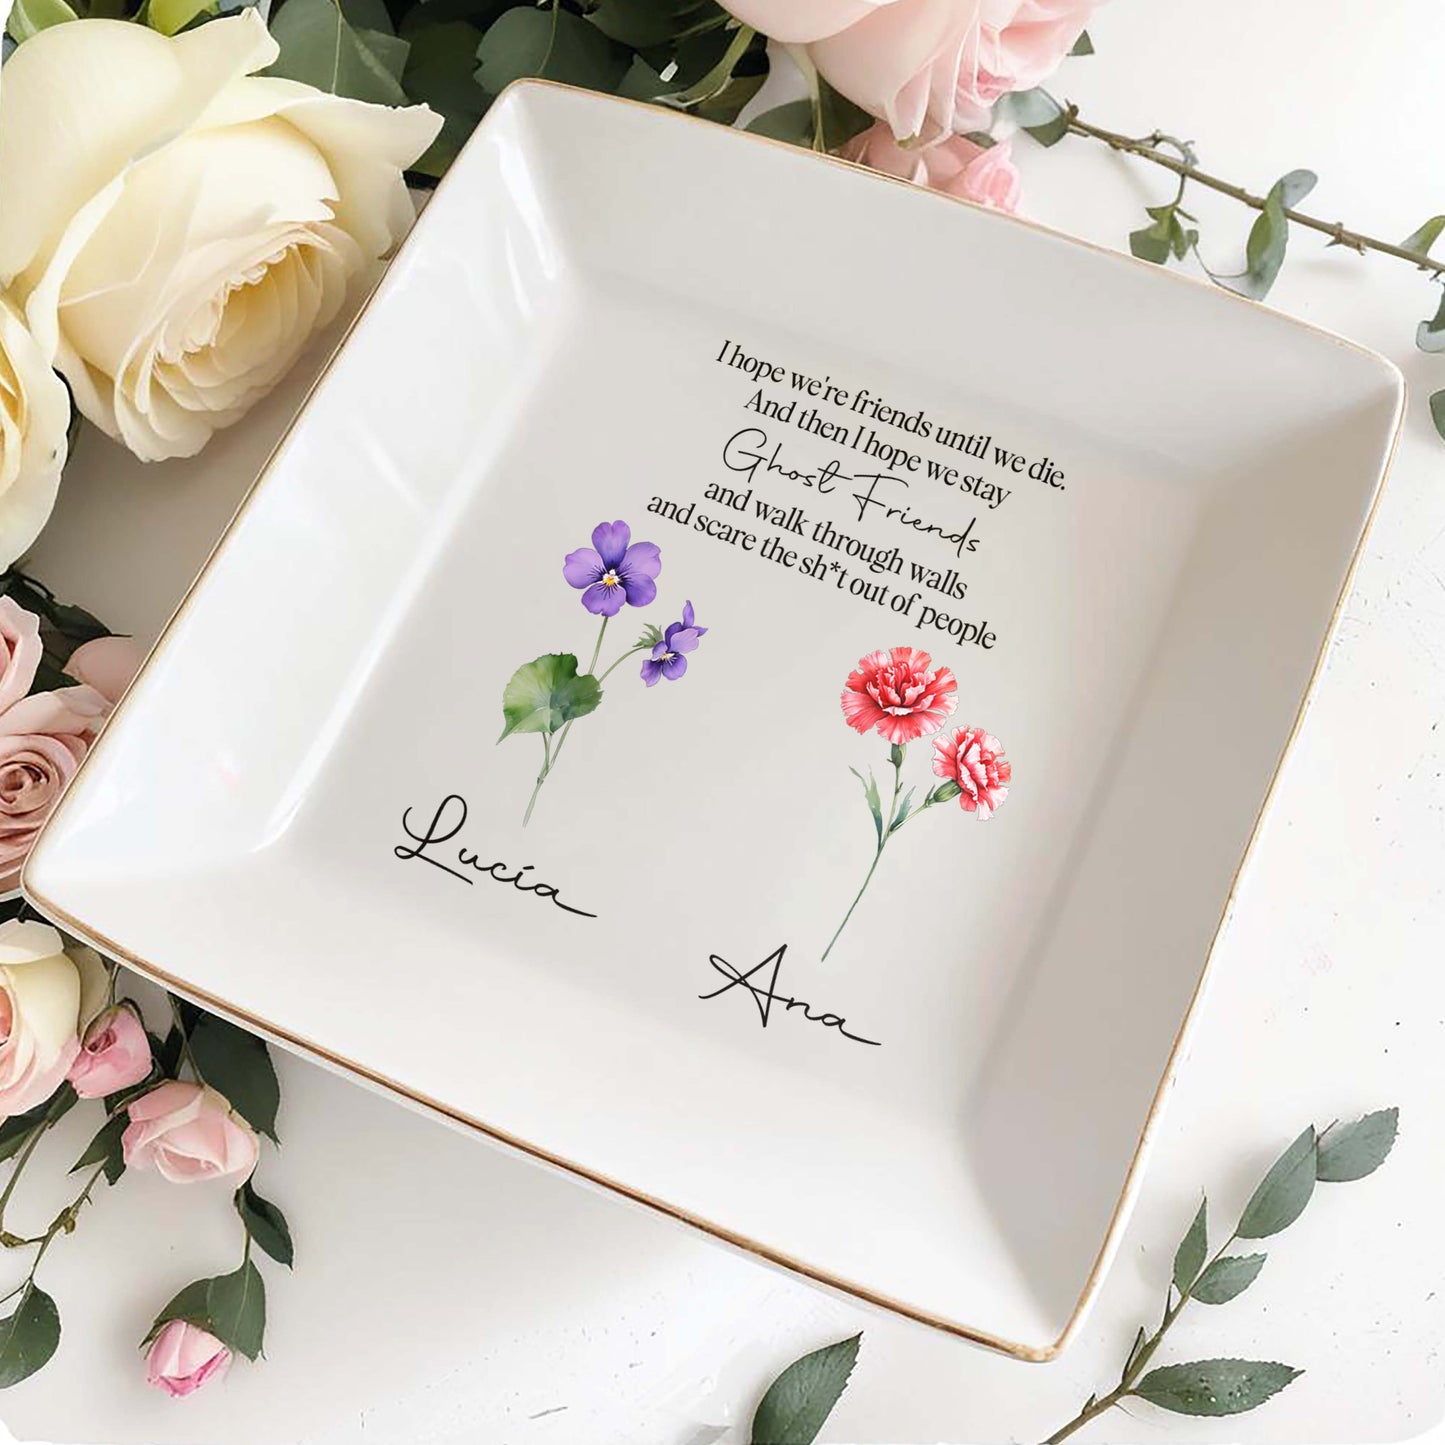 I hope we're friends until we die.
And then I hope we stay
Ghost Friends
and walk through walls
and scare the sh*t out of people
Lucía
Ana